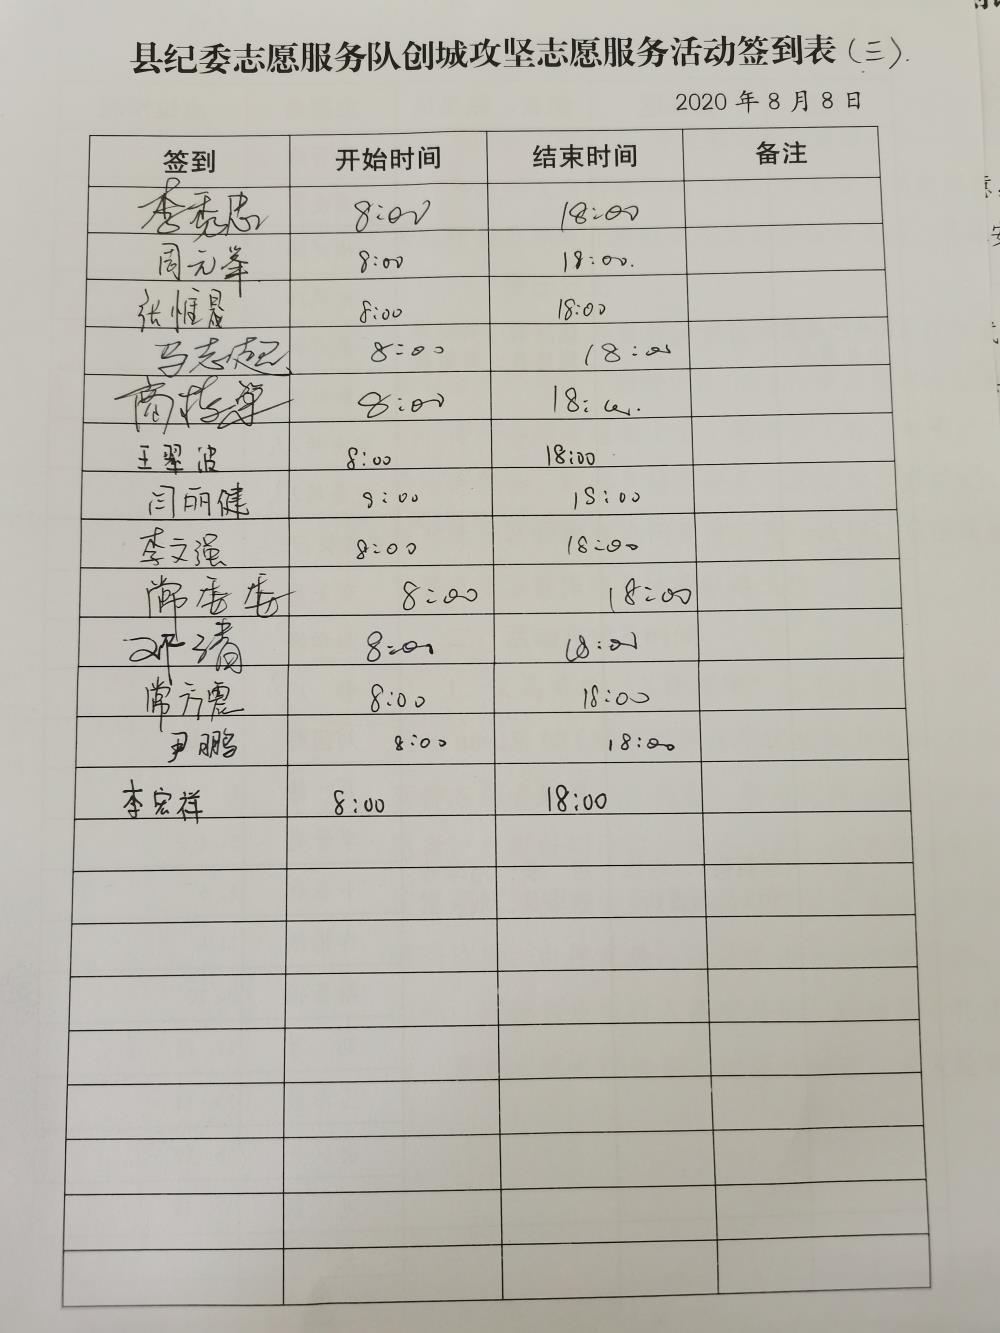 县纪委志愿服务队创城攻坚志愿服务活动签到表(三).
2020 年 8 月 8 日
签到 开始时间 结束时间 备注
李秀忠 8:00 18:00
周元峯 8:00 18:00.
张惟晨 8:00 18:00
马志超 8:00 18:00
8:00 18:00.
王翠波 8:00 18:00
闫丽健 8:00 18:00
李文强 8:00 18:00
常香香 8:00 18:00
邓清 8:00 18:00
常方震 8:00 18:00
尹鹏 8:00 18:00
李宏祥 8:00 18:00